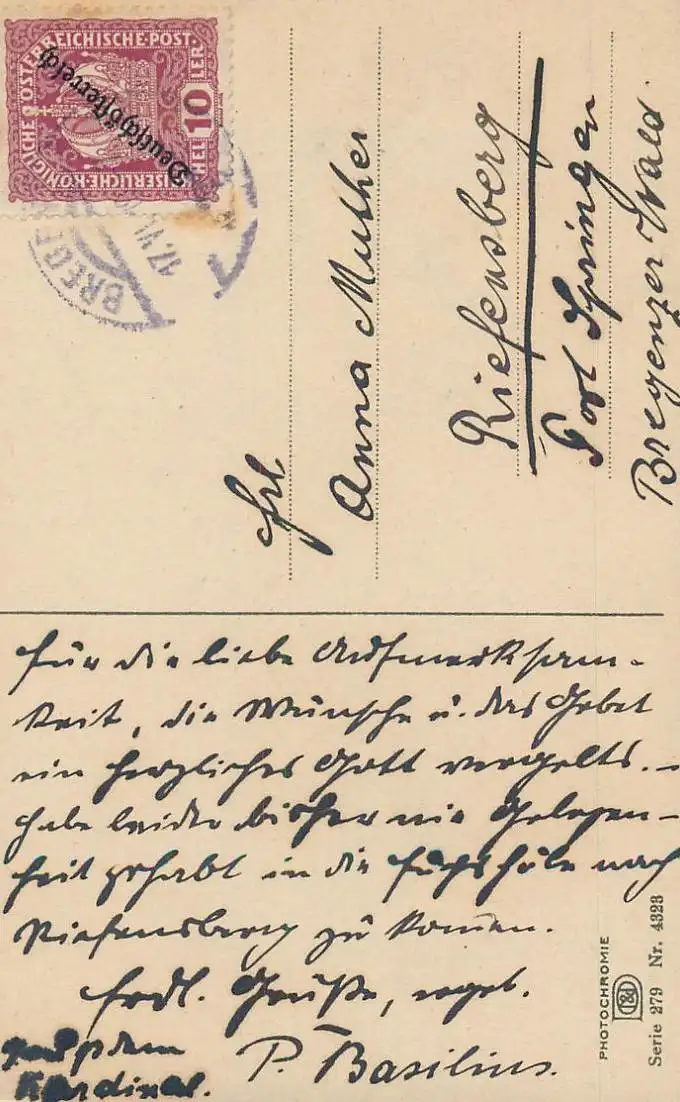 KAISERLICHE·KÖNIGLICHE ÖSTERREICHISCHE·POST·
10
HELLER
Deutschösterreich
BREGE
17.VI
Frl
Anna Muther
Riefensberg
Post Springen
Bregenzer Wald.
Für die liebe Aufmerksam-
keit, die Wünsche u. das Gebet
ein herzliches Gott vergelts. –
Habe leider bisher nie Gelegen-
heit gehabt in die nach
Riefensberg zu kommen.
Frdl. Grüße, ergeb.
P. Basilius.
Kardinal.
PHOTOCHROMIE
Serie 279 Nr. 4323